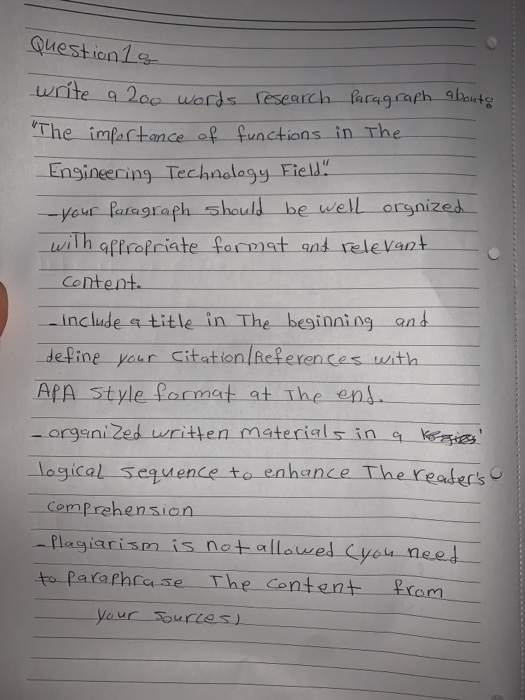 Question 1 :
write a 200 words research Paragraph about:
"The importance of functions in The
Engineering Technology Field."
- your Paragraph should be well orgnized
with appropriate format and relevant
content.
- Include a title in The beginning and
define your Citation/References with
APA Style format at The end.
- organized written materials in a
logical sequence to enhance The reader's
comprehension
- Plagiarism is not allowed (you need
to paraphrase The content from
your sources)